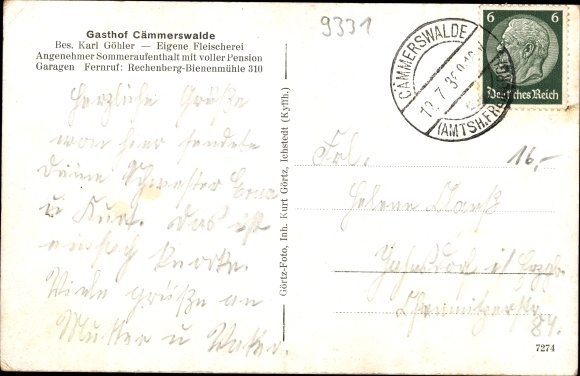 Gasthof Cämmerswalde
Bes. Karl Göhler — Eigene Fleischerei
Angenehmer Sommeraufenthalt mit voller Pension
Garagen Fernruf: Rechenberg-Bienenmühle 310
9331
Herzliche Grüße
von hier sendete
Deine Schwester Erna
u Kurt. Das ist
einfach knorke.
Viele grüße an
Mutter u Vater.
Görtz-Foto, Inh. Kurt Görtz, Ichstedt (Kyffh.)
CÄMMERSWALDE
(AMTSH.FRE
6 6
Deutsches Reich
16,-
Frl.
Helene
Jahnsdorf i/ Erzgb.
Chemnitzerstr.
84.
7274